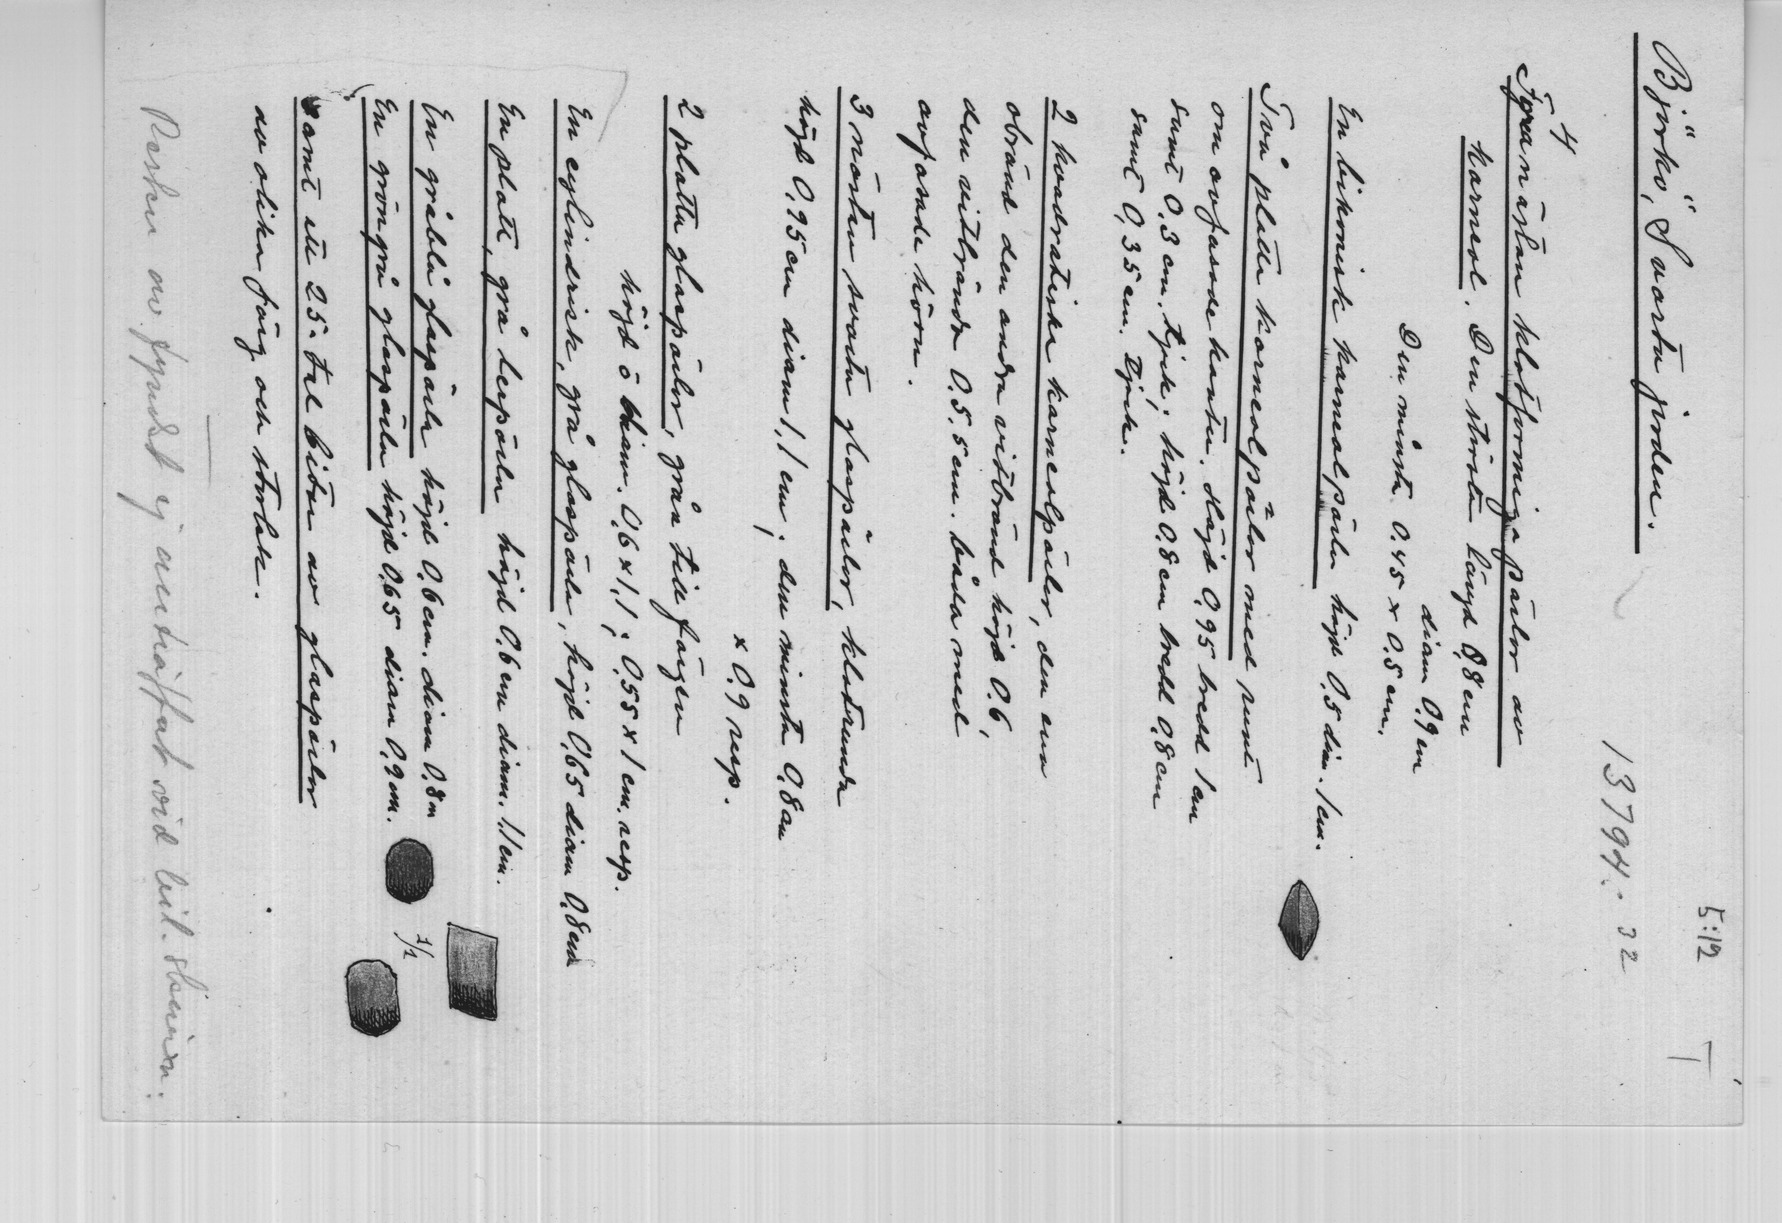 5:12
Björkö, Svarta jorden.
13794: 32
4
Fyra nästan klotformiga pärlor av
karneol. Den största längd 0,8 cm
diam 0,9 cm
Den minsta 0.45 x 0.5 cm.
En bikonisk karneolpärla höjd 0,5 dia. 1 cm.
Två platta karneolpärlor med runt
om avfasade kanter. Höjd 0,95 bredd 1 cm
samt 0,3 cm. tjock; höjd 0,8 cm bredd 0,8 cm
samt 0,35 cm. tjock.
2 kvadratiska karneolpärlor, den ena
obränd den andra vitbränd höjd 0.6,
den vitbrända 0,5,5 cm. båda med
avfasade hörn.
3 nästan svarta glaspärlor, klotrunda
höjd 0,95 cm diam 1,1 cm; den minsta 0,8 cm
x 0.9 resp.
2 platta glaspärlor, gråa till färgen
höjd o diam. 0,6 x 1,1; 0,55 x 1 cm. resp.
En cylindrisk, grå glaspärla, höjd 0,65 diam 0,8 cm
En platt, grå lerpärla höjd 0.6 cm diam. 1,1 cm.
En gråblå glaspärla höjd 0,6 cm. diam 0,8 cm
En gröngrå glaspärla höjd 0,65 diam 0,9 cm.
1/1
samt ett 25-tal bitar av glaspärlor
av olika färg och storlek.
Resten av fyndet ej anträffat vid bild. skrivn.